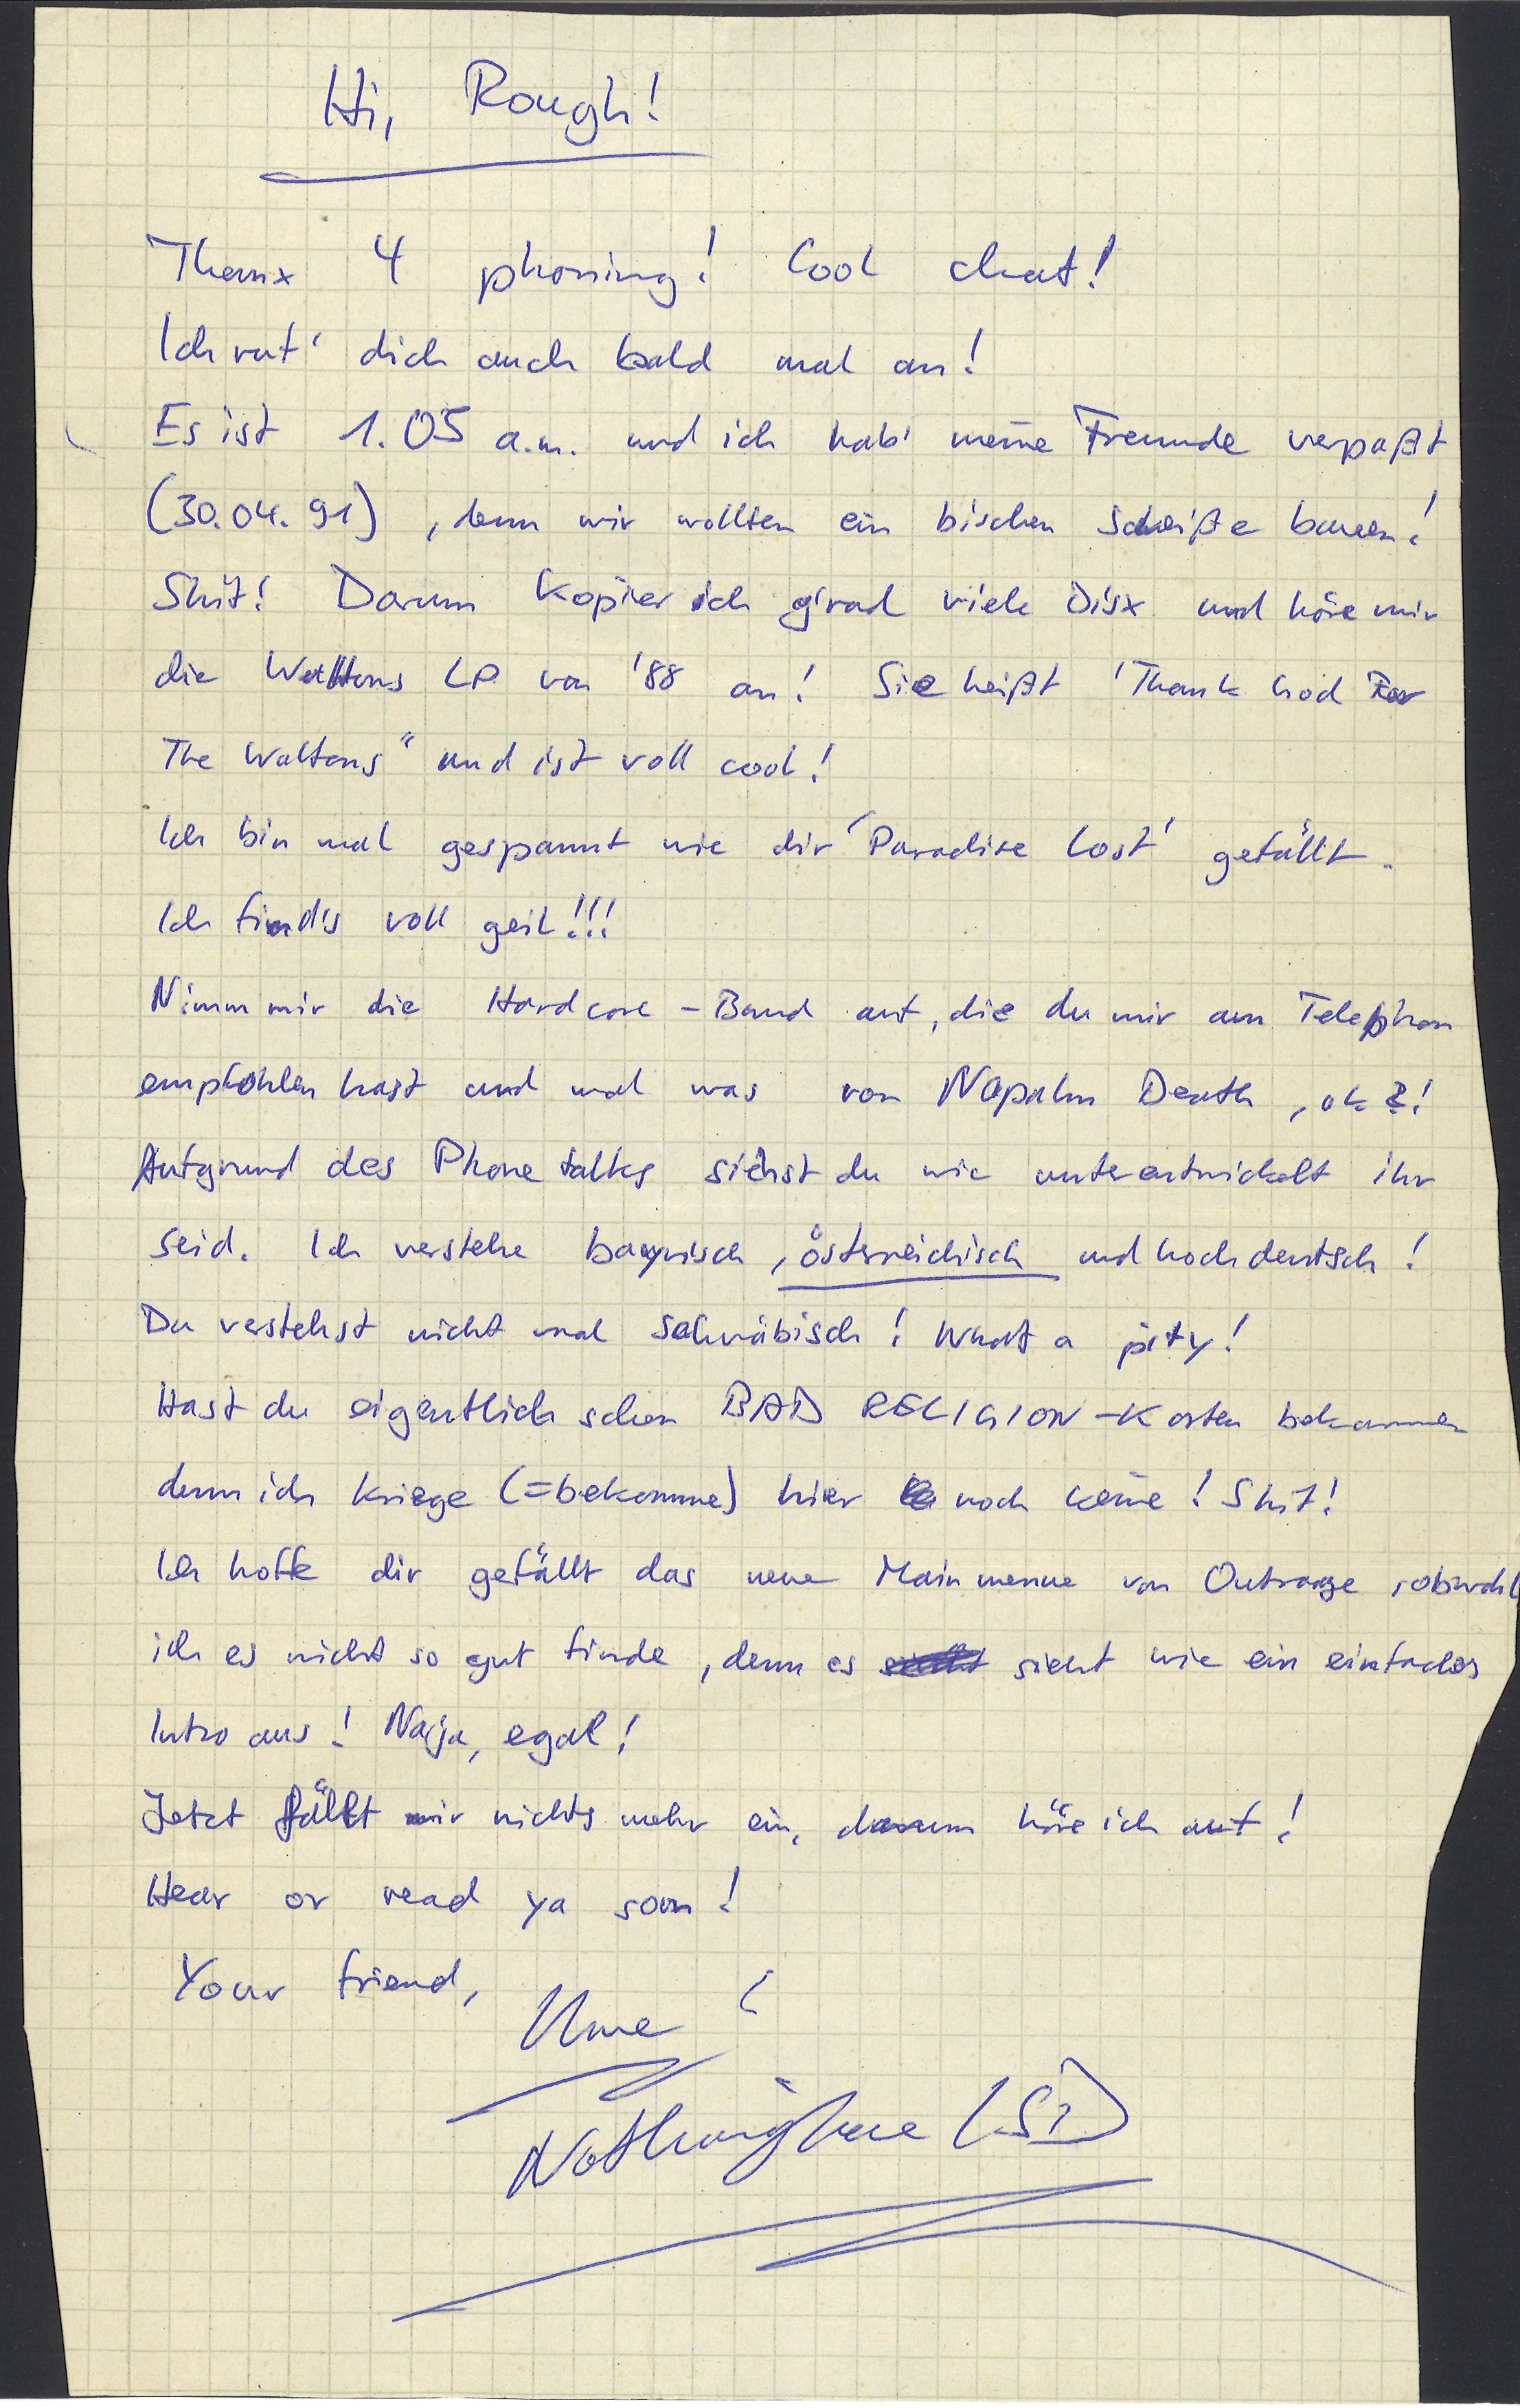 Hi, Rough!
Thanx 4 phoning! Cool chat!
Ich ruf' dich auch bald mal an!
Es ist 1.05 a.m. und ich hab' meine Freunde verpaßt
(30.04.91), denn wir wollten ein bischen scheiße bauen!
Shit! Darum kopier ich g'rad viele Disx und höre mir
die Waltons LP von '88 an! Sie heißt 'Thank God For
The Waltons" und ist voll cool!
Ich bin mal gespannt wie dir 'Paradise Lost' gefällt.
Ich find's voll geil!!!
Nimm mir die Hardcore-Band auf, die du mir am Telephon
empfohlen hast und mal was von Napalm Death, ok?!
Aufgrund des Phonetalks siehst du wie unterentwickelt ihr
seid. Ich verstehe bayrisch, österreichisch und hochdeutsch!
Du verstehst nicht mal schwäbisch! What a pity!
Hast du eigentlich schon BAD RELIGION-Karten bekommen
denn ich kriege (=bekomme) hier noch keine! Shit!
Ich hoffe dir gefällt das neue Mainmenue von Outrage, obwohl
ich es nicht so gut finde, denn es sieht wie ein einfaches
Intro aus! Naja, egal!
Jetzt fällt mir nichts mehr ein, darum höre ich auf!
Hear or read ya soon!
Your friend,
Uwe